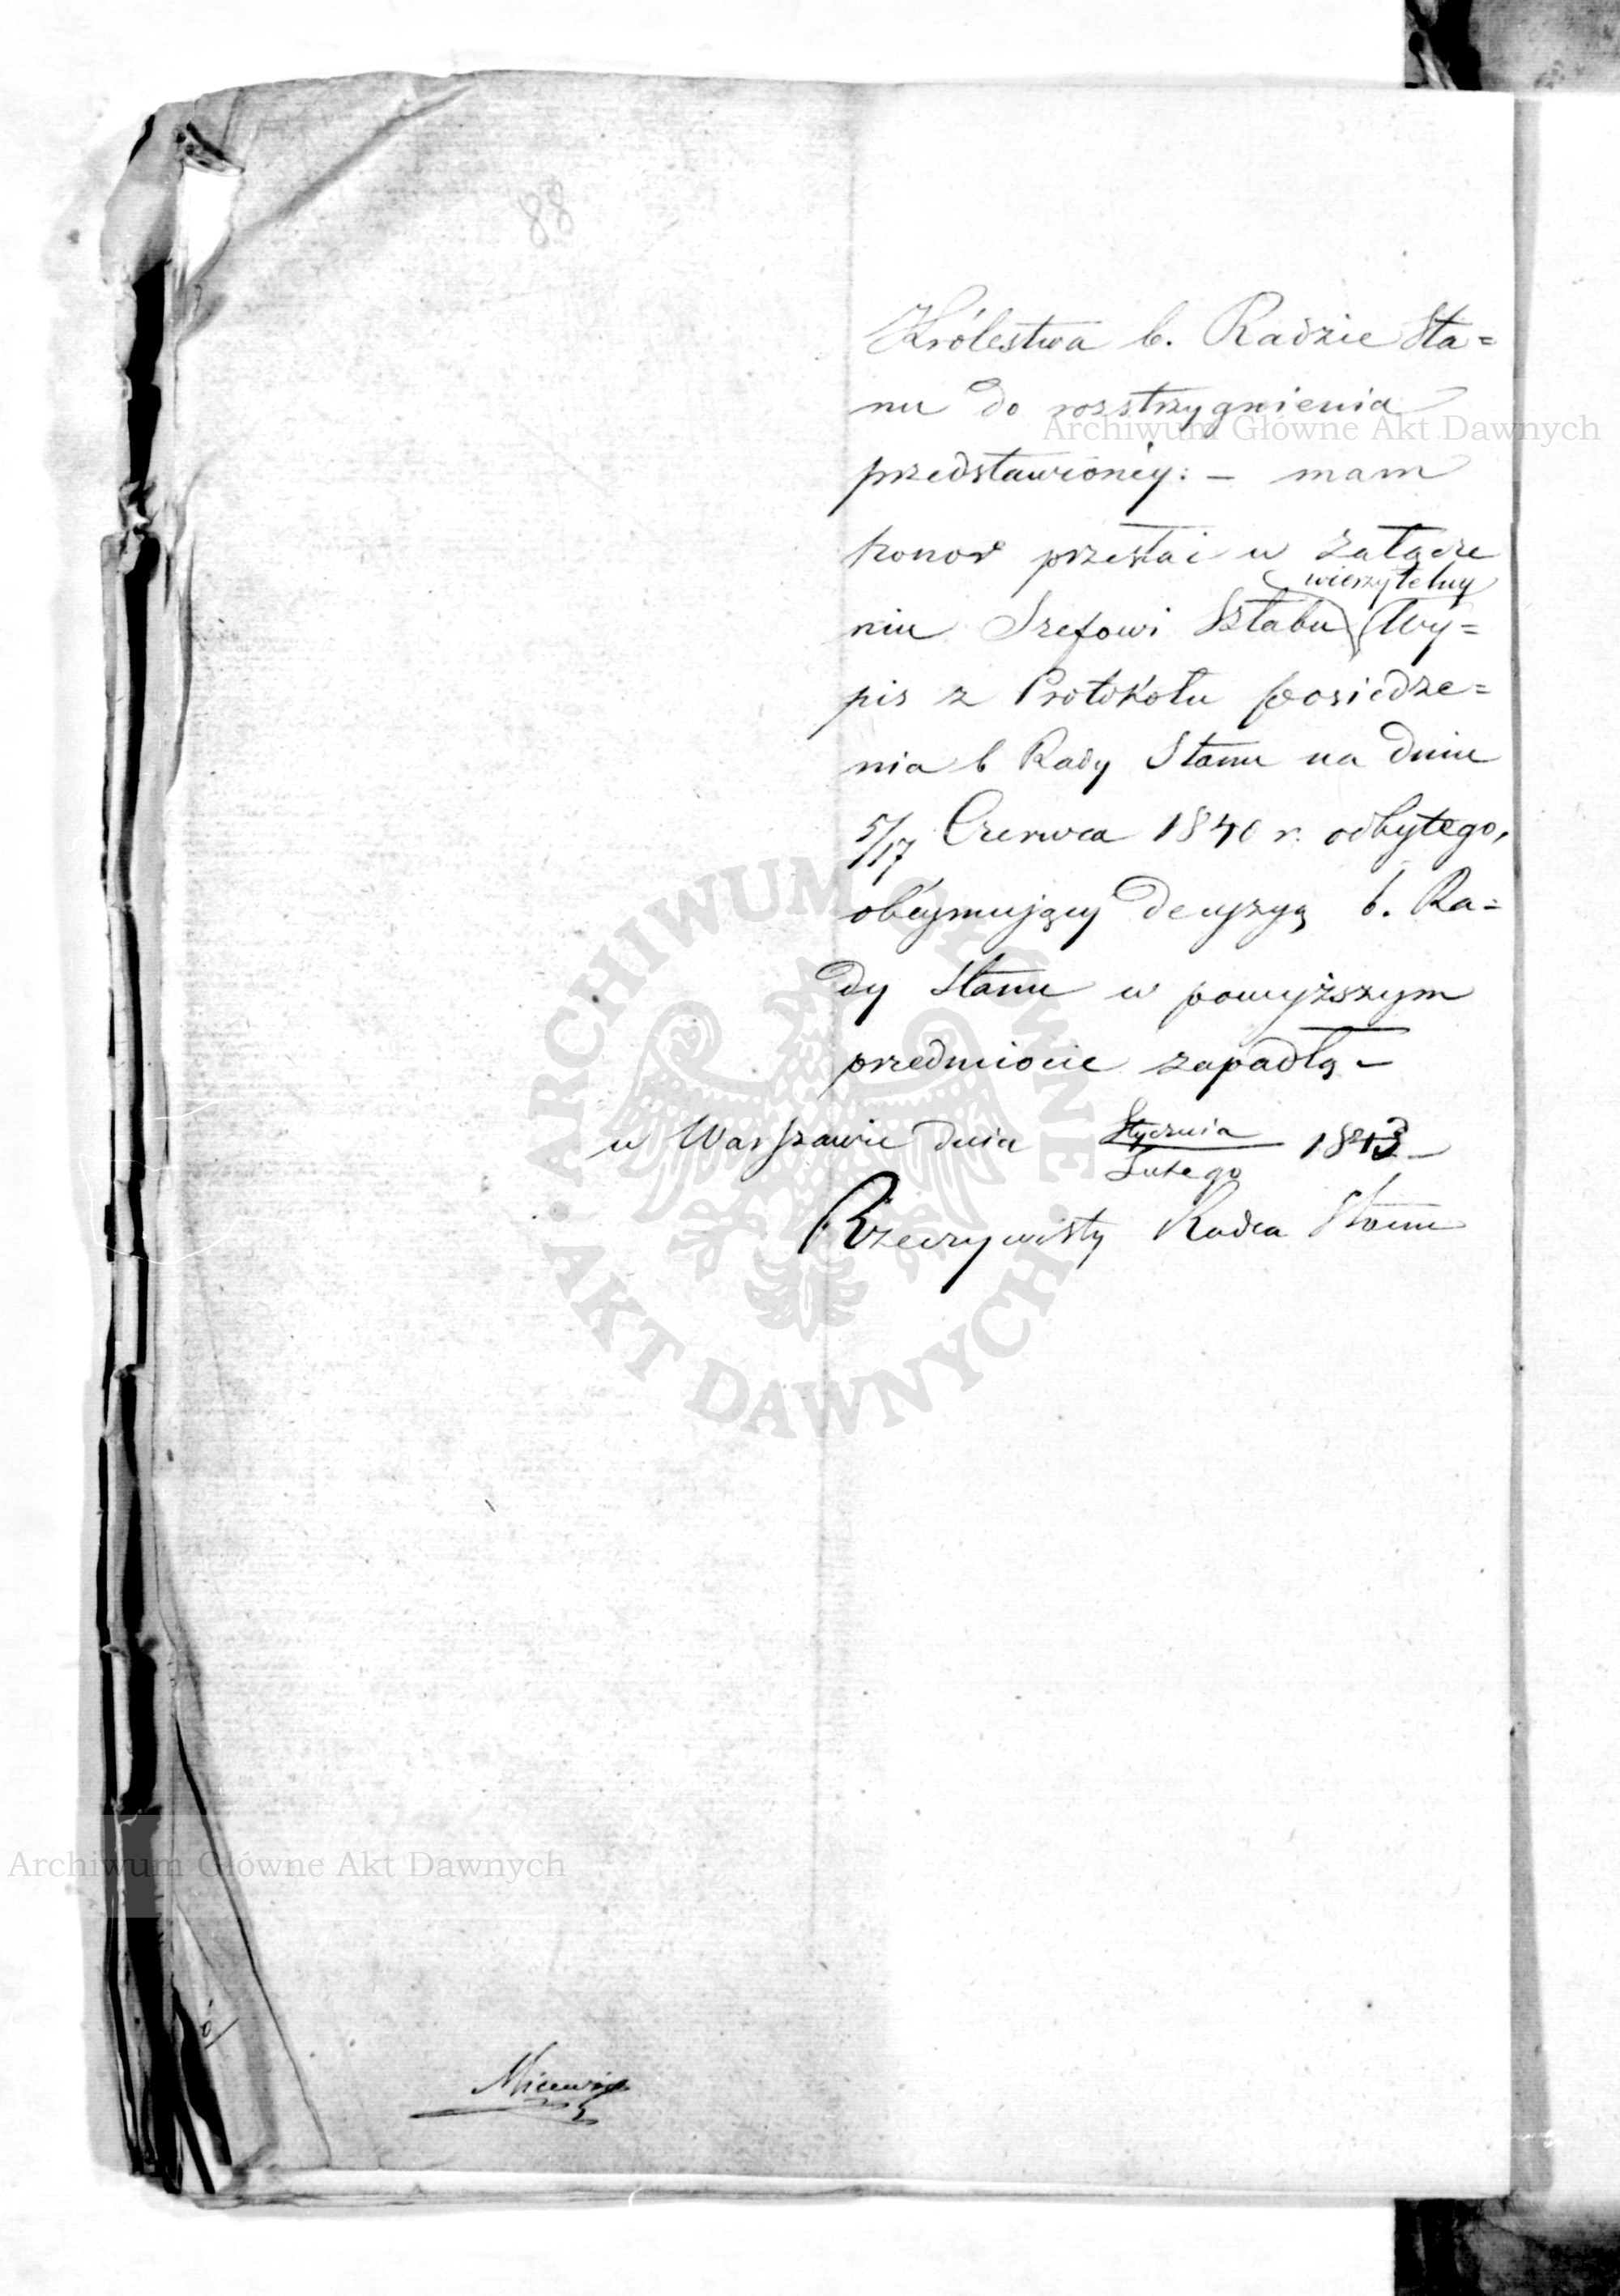 88
Królestwa b. Radzie Sta=
nu do rozstrzygnienia
przedstawionéy: – mam
honor przesłać w załącze
wierzytelny
niu Szefowi Sztabu Wy=
pis z Protokółu posiedze=
nia b Rady Stanu na dniu
5/17 Czerwca 1840 r. odbytego,
obéymujący decyzyą b. Ra=
dy Stanu w powyższym
przedmiocie zapadłą –
w Warszawie dnia Stycznia/Lutego 1843 –
Rzeczywisty Radca Stanu
Archiwum Główne Akt Dawnych
ARCHIWUM GŁÓWNE · AKT DAWNYCH ·
Archiwum Główne Akt Dawnych